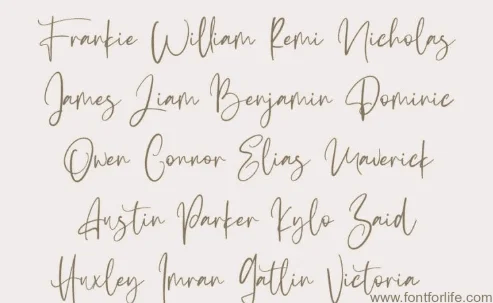 Frankie William Remi Nicholas
James Liam Benjamin Dominic
Owen Connor Elias Maverick
Austin Parker Kylo Zaid
Huxley Imran Gatlin Victoria
www.fontforlife.com